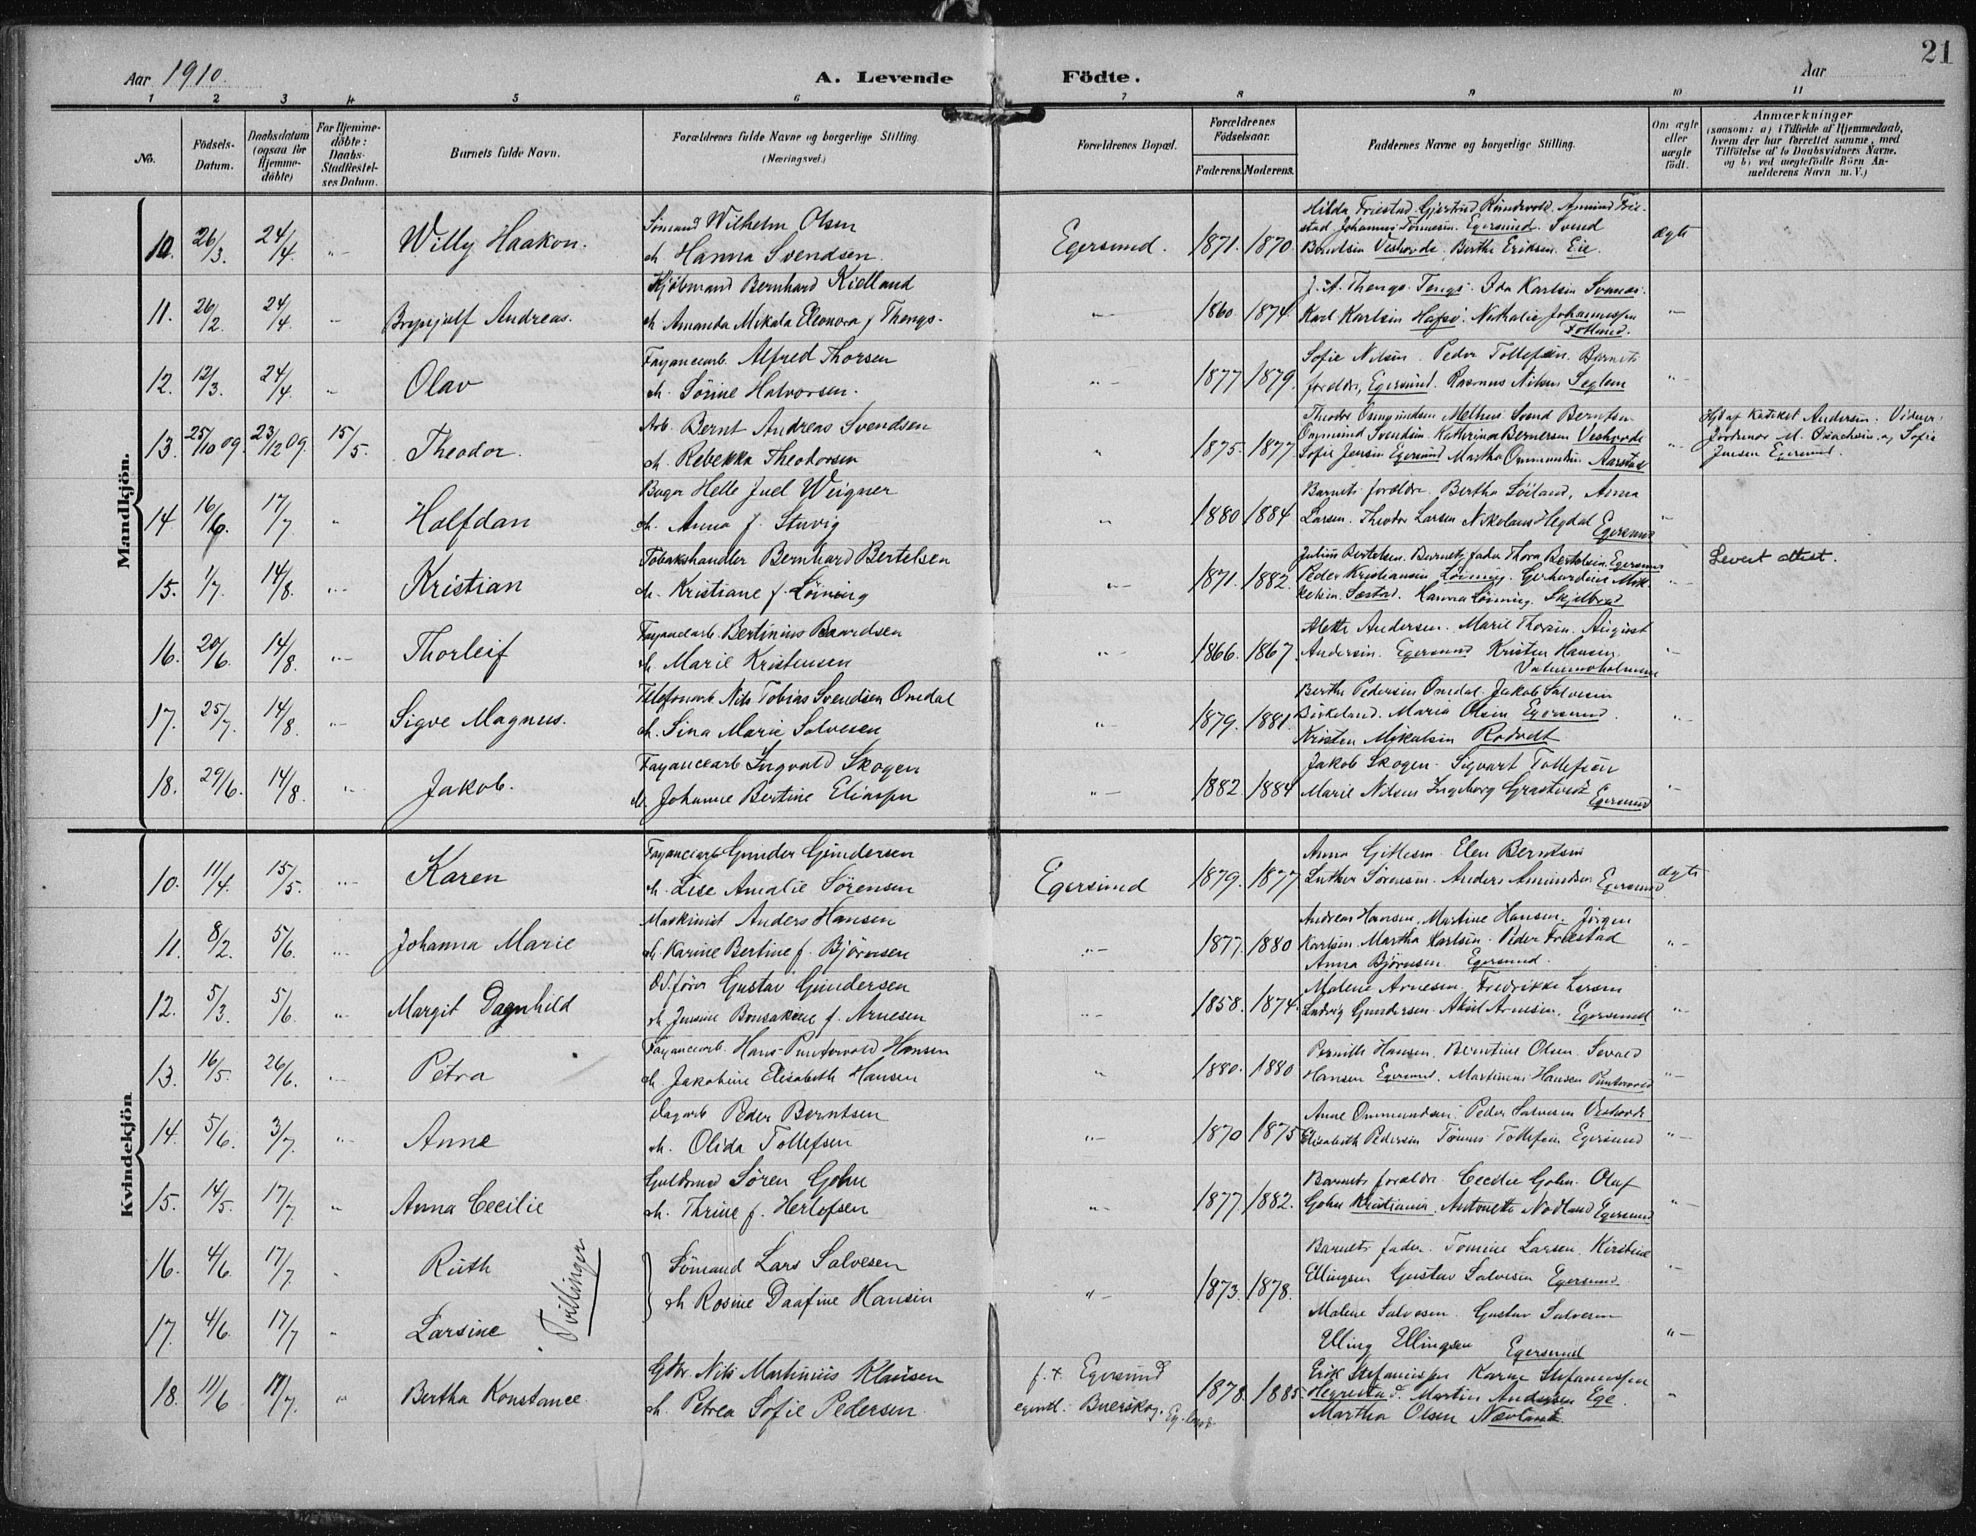 21
Aar 1910. A. Levende Födte. Aar
1 2 3 4 5 6 7 8 9 10 11
No.
Födsels-Datum.
Daabsdatum (ogsaa for Hjemme-döbte)
For Hjemme-döbte: Daabs-Stadfæstel-ses Datum.
Barnets fulde Navn.
Forældrenes fulde Navne og borgerlige Stilling.
(Næringsvei.)
Forældrenes Bopæl.
Forældrenes Födselsaar.
Faderens. Moderens.
Faddernes Navne og borgerlige Stilling.
Om ægte eller uægte födt.
Anmærkninger
(saasom: a) i Tilfælde af Hjemmedaab, hvem der har forrettet samme, med Tilföielse af to Daabsvidners Navne, og b) ved uægtefödte Börn An-melderens Navn m. V.)
Mandkjön.
10. 26/3. 24/4. "- Willy Haakon.
Sömand Wilhelm Olsen
m Hanna Svendsen.
Egersund. 1871. 1870.
Hilda Friestad. Gjertrud Amund Frie-
stad Johannes Tönnesen. Egersund. Svend
Berntsen Veshovde. Berthe Eriksen. Eie.
ægte
11. 20/2. 24/4. - Brynjulf Andreas.
Kjöbmand Bernhard Kielland
m Amanda Mikala Eleonora f Thengs.
"- 1860. 1874.
J. A. Thengs. Tengs. Ida Karlsen Svanes.
Karl Karlsen Nathalie Johannessen
Fotland.
"-
12. 12/3. 24/4. - Olav
Fayancearb Alfred Thorsen
m. Sörine Halvorsen.
"- 1877 1879.
Sofie Nilsen. Peder Tollefsen. Barnets
foreldre, Egersund. Rasmus Nilsen Seglem
"-
13. 25/10 09. 23/12 09. 15/5. Theodor.
Arb. Bernt Andreas Svendsen
m. Rebekka Theodorsen
" 1875. 1877.
Theodor Ommundsen Melhus Svend Berntsen
Ommund Svendsen Kathrina Bernersen Veshovde
Sofie Jensen Egersund Martha Ommundsen Aarstad
"-
Hjd af Kateket Andersen. Vidner:
Jordmor M. Isachsen og Sofie
Jensen Egersund.
14 16/6. 17/7 " Halfdan
Bager Helle Juel Weigner
m. Anna f. Stuvig
" 1880 1884
Barnets foreldre. Bertha Löiland, Anna
Larsen. Theodor Larsen Nikolaus Hegdal Egersund
"-
15. 1/7. 14/8. "- Kristian
Tobakshandler Bernhard Bertelsen
m. Kristiane f. Löining
"- 1871. 1882.
Julius Bertelsen. Barnets fader Thora Bertelsen. Egersund
Peder Kristiansen Löining. Gerhardine Mik-
kelsen. Sæstad. Hanna Löining. Skjelbred
"-
Levert attest.
16. 20/6. 14/8. "- Thorleif
Fayancearb. Bertinius Baardsen
m Marie Kristensen
"- 1866. 1867.
Alette Andersen. Marie Thorsen. August
Andersen. Egersund Kristen Hansen
Vatnemoholmen
"-
17. 25/7. 14/8. "- Sigve Magnus.
Telefonarb. Nils Tobias Svendsen Omdal
m. Sina Marie Salvesen
"- 1879. 1881.
Berthe Pedersen Omdal. Jakob Salvesen
Birkeland. Maria Olsen Egersund.
Kristen Mikalsen Rodvelt
"-
18. 29/6. 14/8. "- Jakob.
Fayancearb Ingvald Skogen
m. Johanne Bertine Eliassen
"- 1882. 1884
Jakob Skogen. Sigvart Tollefsen
Marie Nilsen Ingeborg Grastveit Egersund
"-
Kvindekjön
10. 11/4. 15/5. "- Karen
Fayancearb Gunder Gundersen
m. Lise Amalie Sörensen
Egersund 1879. 1877
Anna Gitlesen. Elen Berntsen
Luther Sörensen. Anders Amundsen Egersund
ægte
11. 8/2. 5/6. "- Johanna Marie
Maskinist Anders Hansen
m Karine Bertine f. Björnsen
"- 1877. 1880
Andreas Hansen, Martine Hansen. Jörgen
Karlsen. Martha Karlsen. Peder Friestad
Anna Björnsen. Egersund.
"-
12. 5/3. 5/6. " Margit Dagnhild
Gustav Gundersen
m Jensine Bonsakine f. Arnesen
"- 1858. 1874.
Malene Arnesen. Fredrikke Larsen
Ludvig Gundersen. Aksel Arnesen. Egersund
"-
13. 16/5. 26/6. "- Petra
Fayancearb. Hans Puntervold Hansen
m Jakobine Elisabeth Hansen
" 1880. 1880
Pernille Hansen. Berntine Olsen. Sevald
Hansen Egersund. Martinius Hansen Puntervold
"-
14. 5/6. 3/7. "- Anne
Dagarb Peder Berntsen
m. Olida Tollefsen
"- 1870 1875
Anne Ommundsen. Peder Salvesen Veshovde
Elisabeth Pedersen Tönnes Tollefsen Egersund
"-
15. 14/5. 17/7 " Anna Cecilie
Guldsmed Sören Gohn
m. Thrine f. Herlofsen
"- 1877. 1882.
Barnets foreldre. Cecilie Gohn. Olaf
Gohn Kristiania. Antonette Nodland Egersund
"-
16. 4/6. 17/7 " Ruth
Tvillinger
Sömand Lars Salvesen
m Rosine Daafine Hansen
"- 1873. 1878.
Barnets fader. Tomine Larsen. Kirstine
Ellingsen Gustav Salvesen Egersund.
"-
17. 4/6. 17/7 " Larsine
Malene Salvesen. Gustav Salvesen
Elling Ellingsen Egersund
"-
18. 11/6. 17/7. " Bertha Konstance
Gdbr. Nils Martinius Klausen
m. Petrea Sofie Pedersen.
f. t. Egersund
egentl. Buerskog. Eg. lands.
1878. 1885.
Erik Stefanussen Karen Stefanussen
Hegrestad. Martin Andersen Ege.
Martha Olsen Nævland.
"